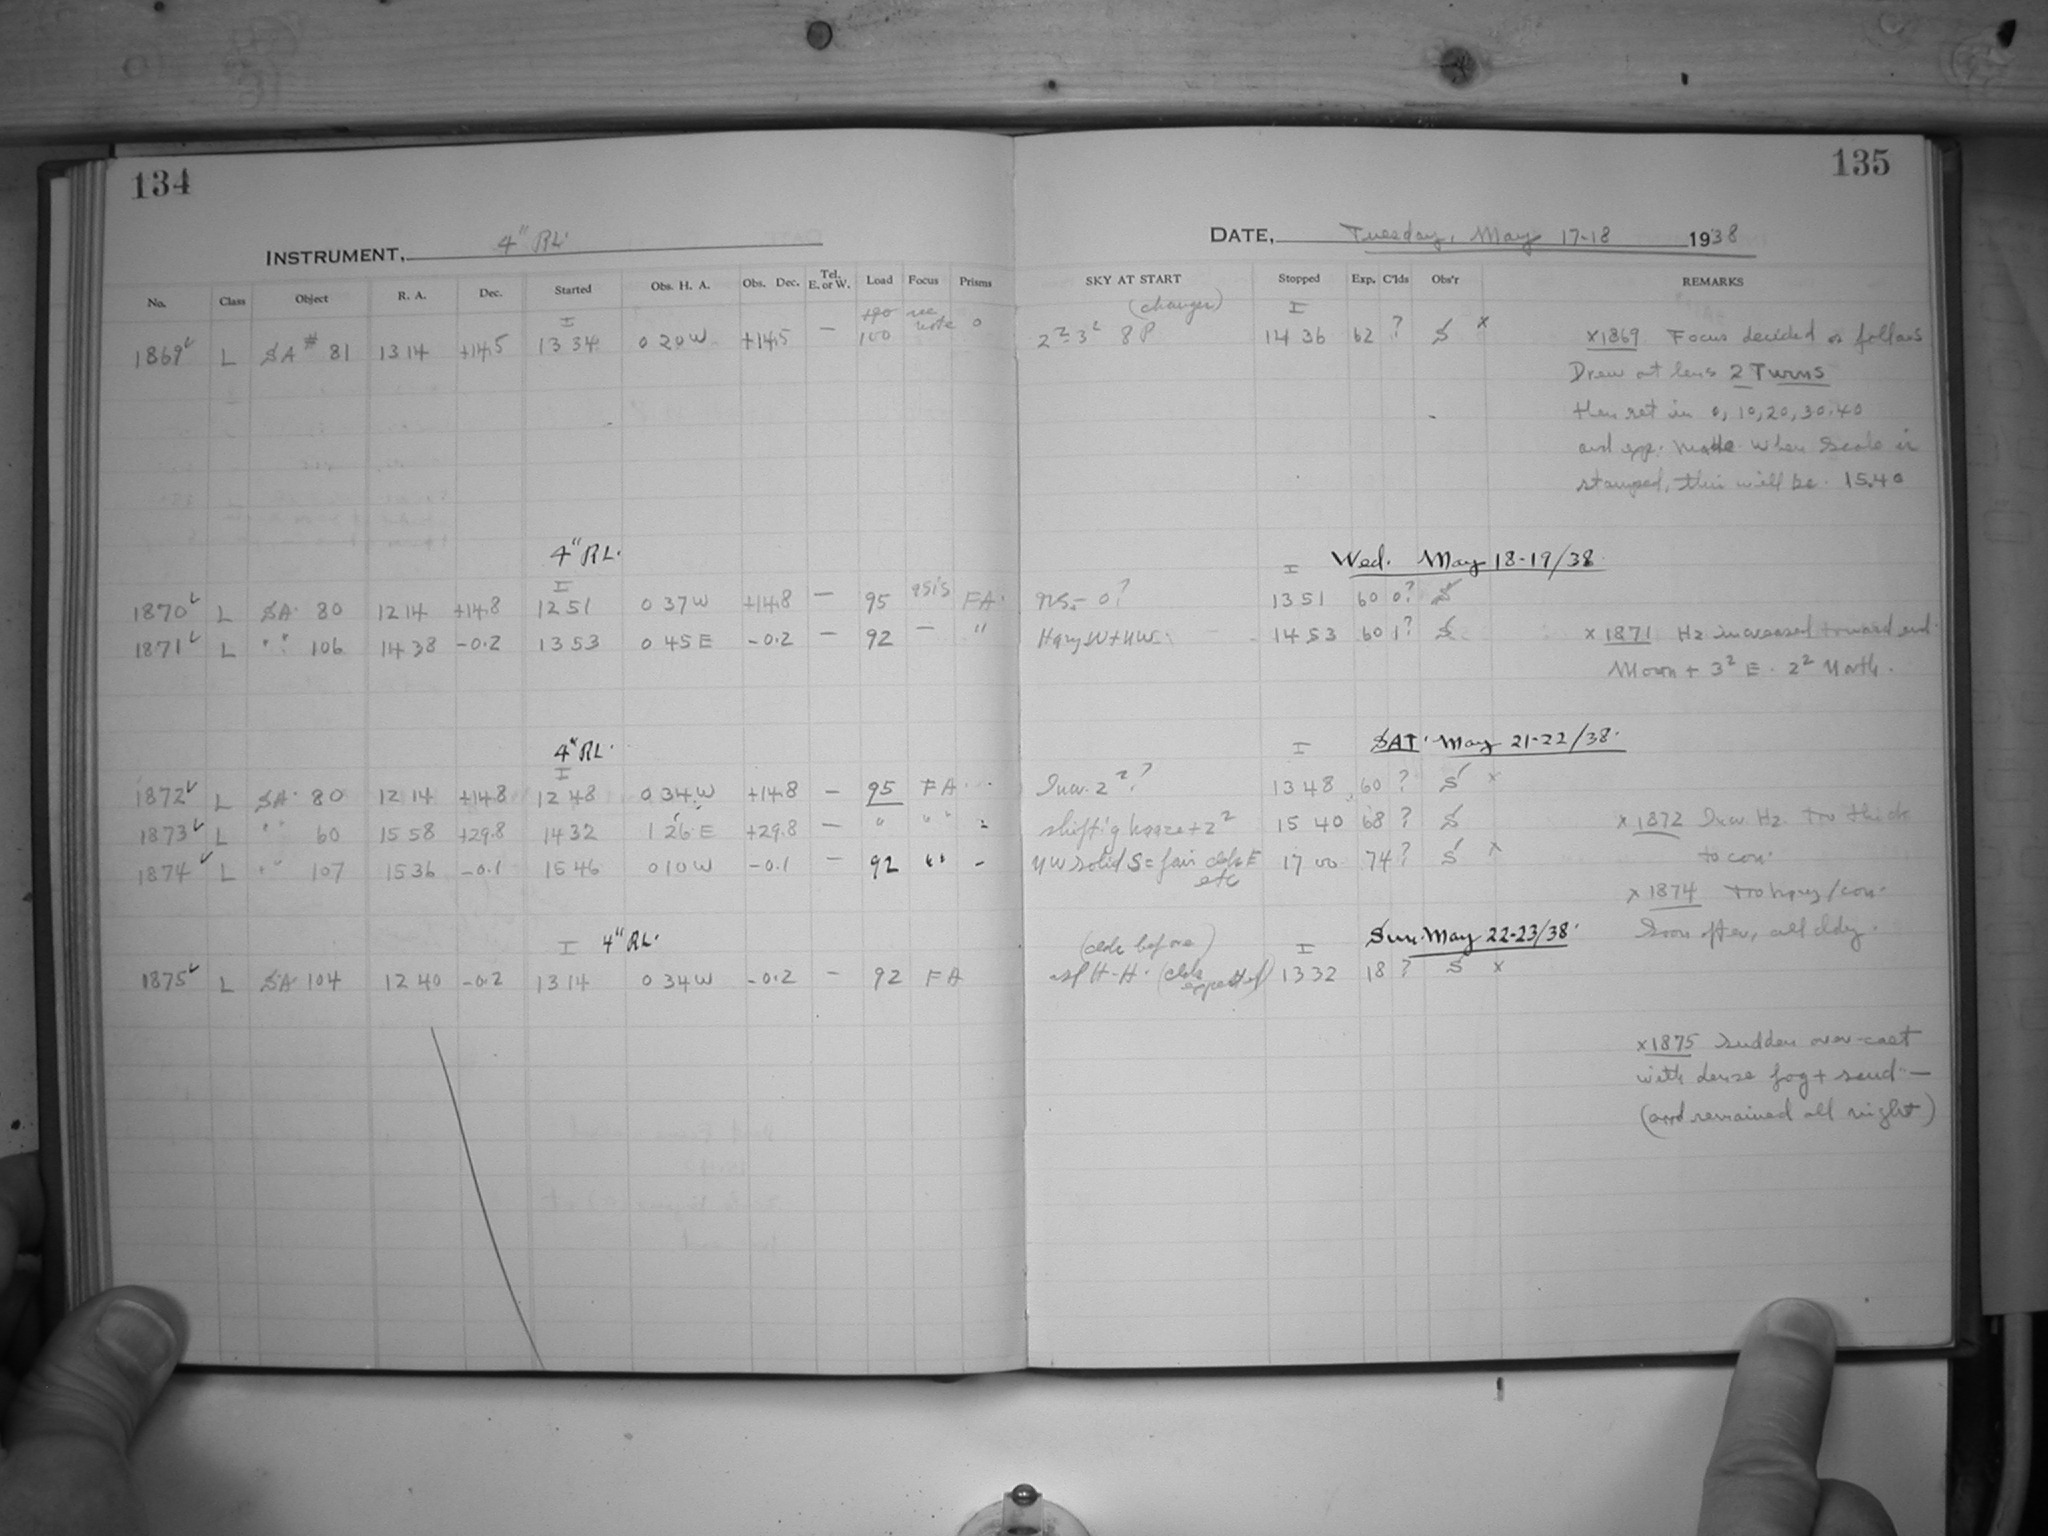 134
INSTRUMENT, 4" RL.
No. Class Object R. A. Dec. Started Obs. H. A. Obs. Dec. Tel. E. or W. Load Focus Prisms
I see note
1869 L SA # 81 1314 +14.5 13 34 0 20 W +14.5 — 100 0
4" RL.
I
1870 L SA. 80 12 14 +14.8 12 51 0 37 W +14.8 — 95 FA.
1871 L " " 106 14 38 -0.2 13 53 0 45 E -0.2 — 92 — "
4" RL.
I
1872 L SA. 80 12 14 +14.8 12 48 0 34 W +14.8 — 95 FA
1873 L " " 60 15 58 +29.8 14 32 1 26 E +29.8 — " " "
1874 L " " 107 15 36 -0.1 15 46 0 10 W -0.1 — 92 " " -
I 4" RL.
1875 L SA. 104 12 40 -0.2 13 14 0 34 W -0.2 — 92 FA
135
DATE, Tuesday, May 17-18 1938
SKY AT START Stopped Exp. C'lds Obs'r REMARKS
(changer) I
2²-3² 8P 14 36 62 ? S x
x1869 Focus decided as follows
Drew out lens 2 Turns
then set in 0, 10, 20, 30, 40
and exp. made. When Scale is
stamped, this will be 15.40
I Wed. May 18-19/38.
- 0? 13 51 60 0? S
Hazy W + NW. 14 53 60 1? S x 1871 Hz increased toward end.
Moon + 3² E. 2² North.
I SAT. May 21-22/38.
2²? 13 48 60 ? S x
shift'g haze + 2² 15 40 68 ? S x 1872 Hz. Too thick
NW solid S = fair clds E etc 17 00 74 ? S x to con.
x 1874 Too hazy/con.
Soon after, all cldy.
(clds before) I Sun. May 22-23/38.
H-H. (clds expected) 13 32 18 ? S x
x1875 Sudden over-cast
with dense fog + scud —
(and remained all night)